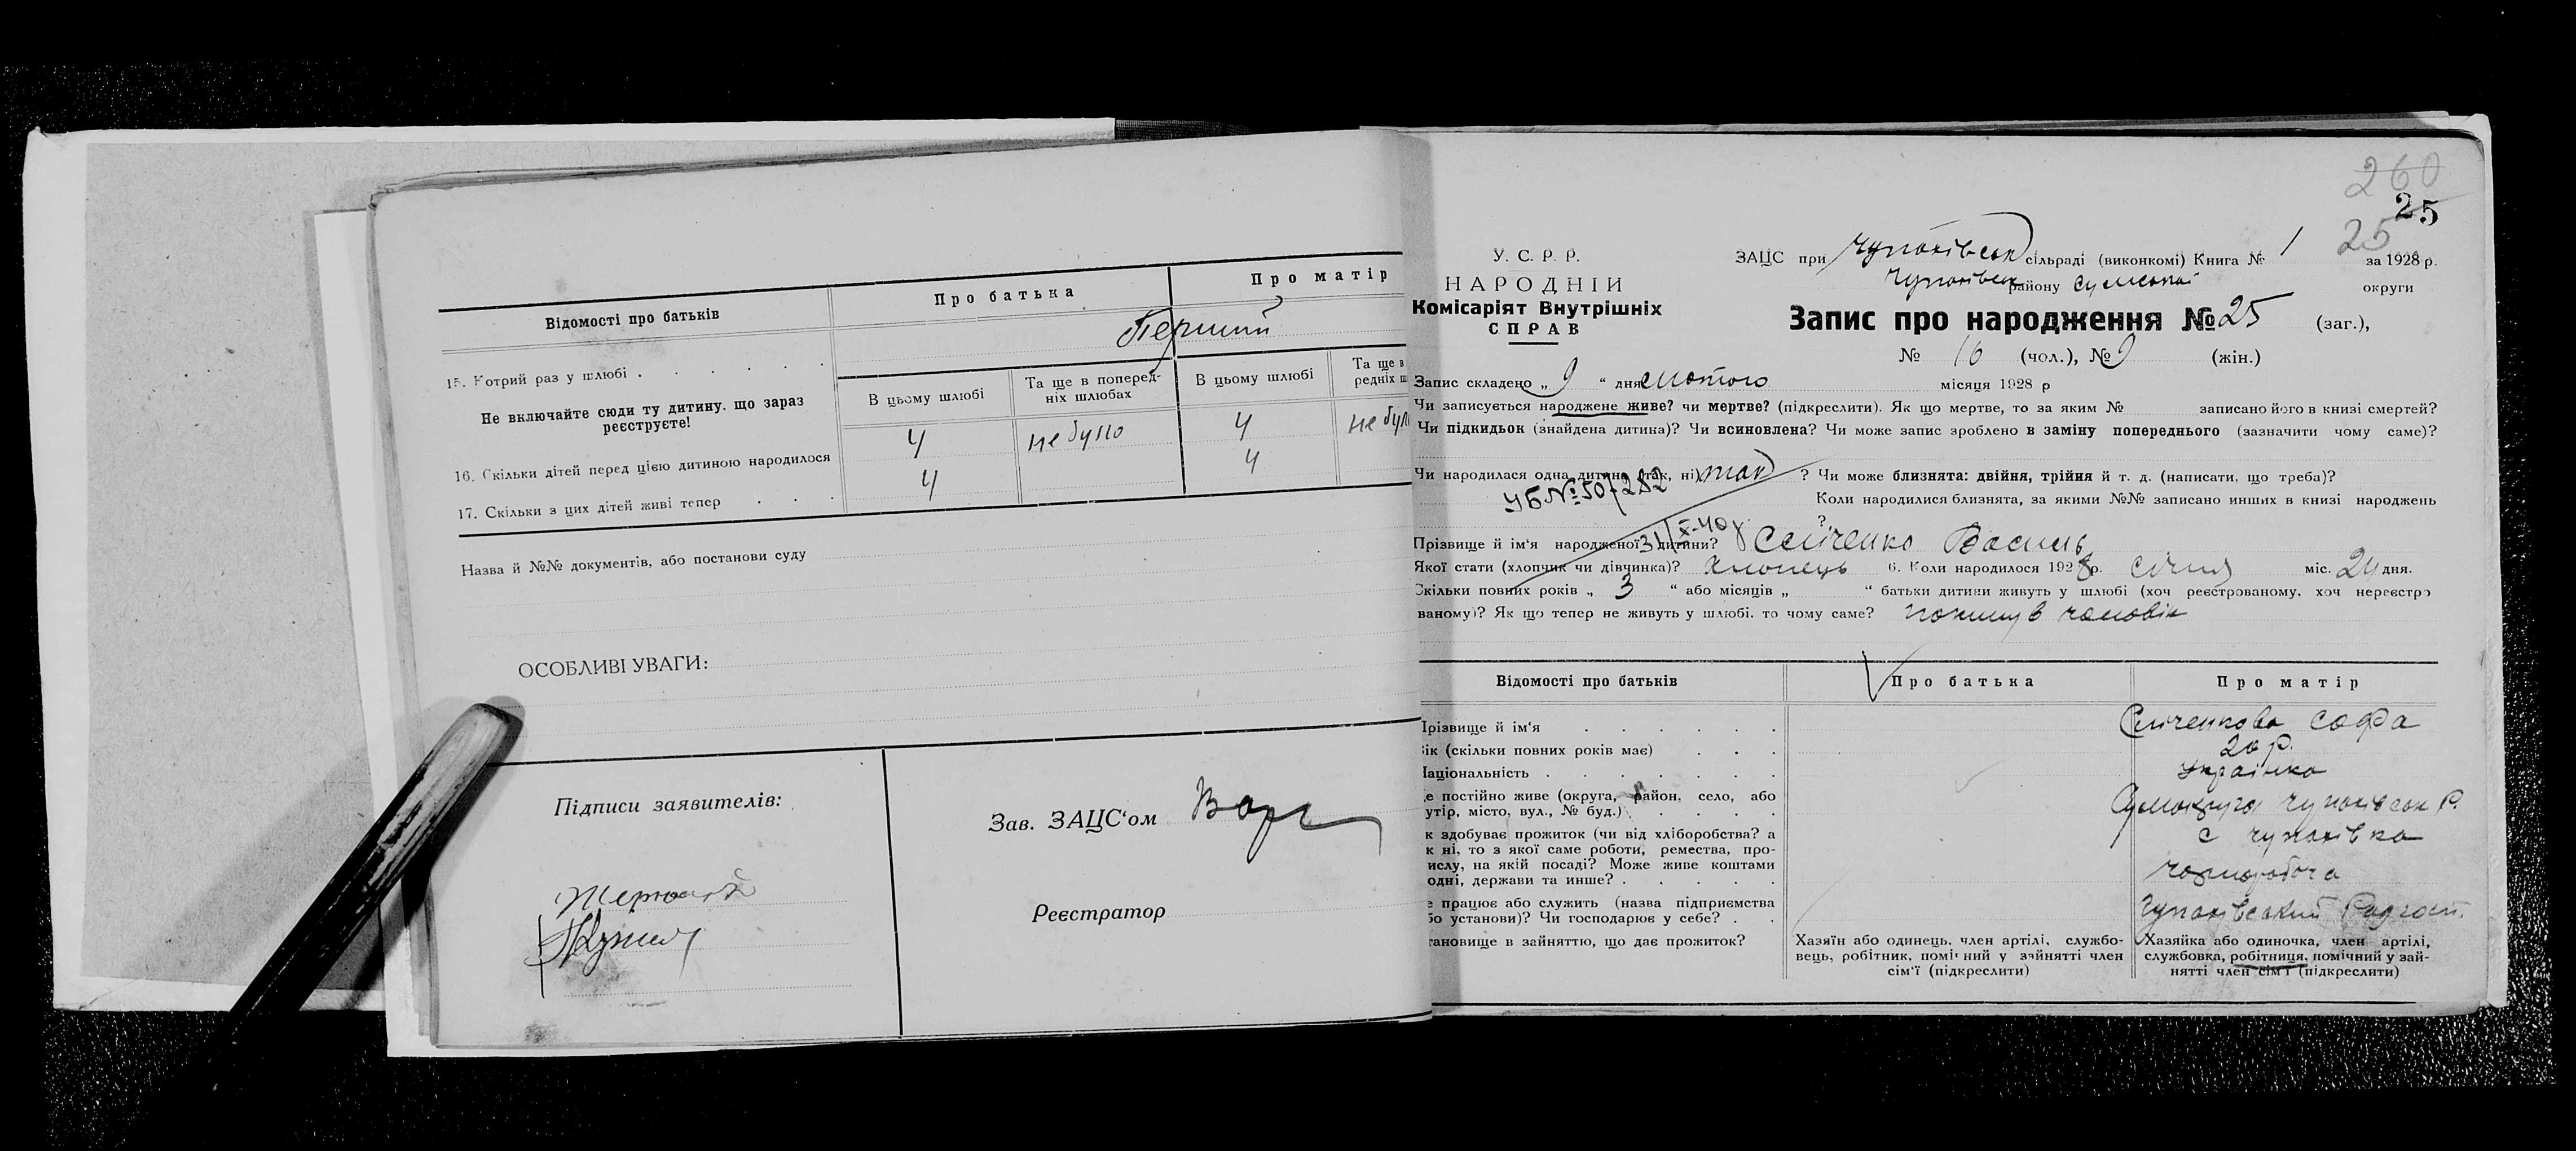 Відомості про батьків
Про батька
Про матір
15. Котрий раз у шлюбі . . . . . .
Перший
Не включайте сюди ту дитину, що зараз
реєструєте!
В цьому шлюбі
Та ще в поперед-
ніх шлюбах
В цьому шлюбі
Та ще в
редніх ш
16. Скільки дітей перед цією дитиною народилося
4
не було
4
не бул
17. Скільки з цих дітей живі тепер . . .
4
4
Назва й №№ документів, або постанови суду
ОСОБЛИВІ УВАГИ:
Підписи заявителів:
Зав. ЗАЦС'ом
Реєстратор
260
25
25
У. С. Р. Р.
НАРОДНІЙ
Комісаріят Внутрішніх
СПРАВ
ЗАЦС при Чупахівськ сільраді (виконкомі) Книга № 1 за 1928 р.
Чупахівськ району Сумської округи
Запис про народження № 25 (заг.),
№ 16 (чол.), № 9 (жін.)
Запис складено „ 9 “ дня лютого місяця 1928 р
Чи записується народжене живе? чи мертве? (підкреслити). Як що мертве, то за яким № записано його в книзі смертей?
Чи підкидьок (знайдена дитина)? Чи всиновлена? Чи може запис зроблено в заміну попереднього (зазначити чому саме)?
Чи народилася одна дитина (так, ні) так ? Чи може близнята: двійня, трійня й т. д. (написати, що треба)?
УБ № 507282
Коли народилися близнята, за якими №№ записано инших в книзі народжень
?
31/X-40р
Прізвище й ім'я народженої дитини? Сліченко Василь
Якої стати (хлопчик чи дівчинка)? Хлопець 6. Коли народилося 1928 р. січня міс. 24 дня.
Скільки повних років „ 3 “ або місяців „ “ батьки дитини живуть у шлюбі (хоч реєстрованому, хоч нереєстро
ваному)? Як що тепер не живуть у шлюбі, то чому саме? покинув чоловік
Відомості про батьків
Про батька
Про матір
Прізвище й ім'я . . . . . .
Сліченкова Софа
ік (скільки повних років має) . . .
26 р.
Національність . . . . . . .
Українка
е постійно живе (округа, район, село, або
утір, місто, вул., № буд.) . . . .
Сумокруга Чупахівськ Р.
с Чупахівка
к здобуває прожиток (чи від хліборобства? а
к ні, то з якої саме роботи, ремества, про-
ислу, на якій посаді? Може живе коштами
одні, держави та инше? . . . . .
чорноробоча
е працює або служить (назва підприємства
бо установи)? Чи господарює у себе? . .
Чупахівський Радгосп.
тановище в зайняттю, що дає прожиток?
Хазяїн або одинець, член артілі, службо-
вець, робітник, помічний у зайнятті член
сім'ї (підкреслити)
Хазяйка або одиночка, член артілі,
службовка, робітниця, помічний у зай-
нятті член сім'ї (підкреслити)